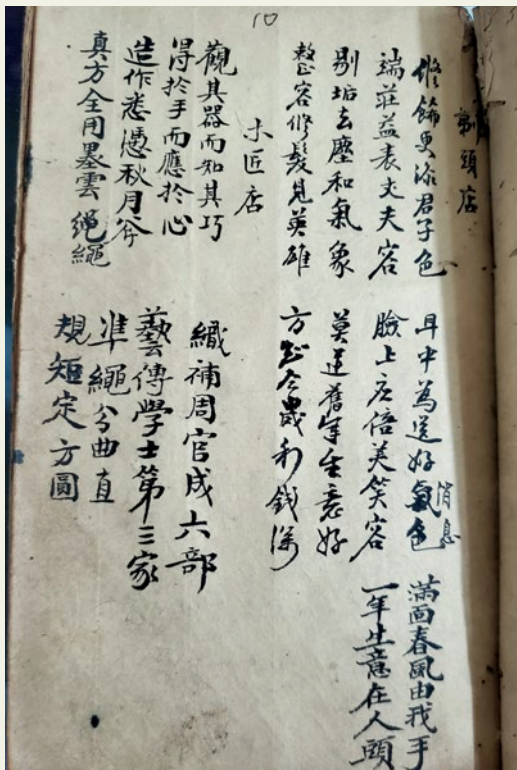 10
剃頭店
修飾更添君子色
端莊益表丈夫容
剔垢去塵和氣象
整容修髮見英雄
耳中為送好氣色
消息
臉上庄倍美笑容
莫道舊年生意好
方知今歲利錢深
滿面春風由我手
一年生意在人頭
木匠店
觀其器而知其巧
得於手而應於心
造作悉憑秋月斧
真方全用墨雲繩繩
織補周官成六部
藝傳學士第三家
準繩分曲直
規矩定方圓